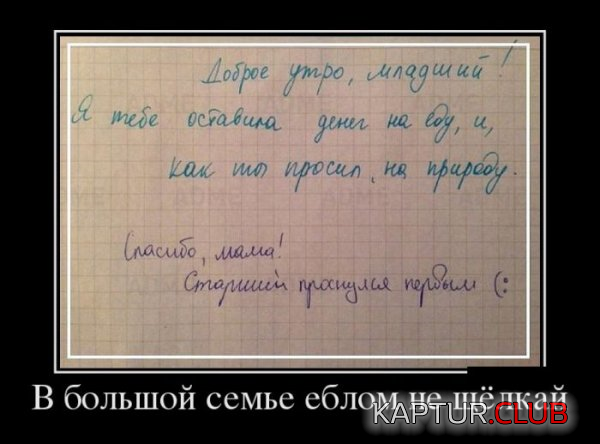 Доброе утро, младший!
Я тебе оставила денег на еду, и,
как ты просил, на природу.
Спасибо, мама!
Старший проснулся первым (:
В большой семье еблом не щёлкай
KAPTUR.CLUB